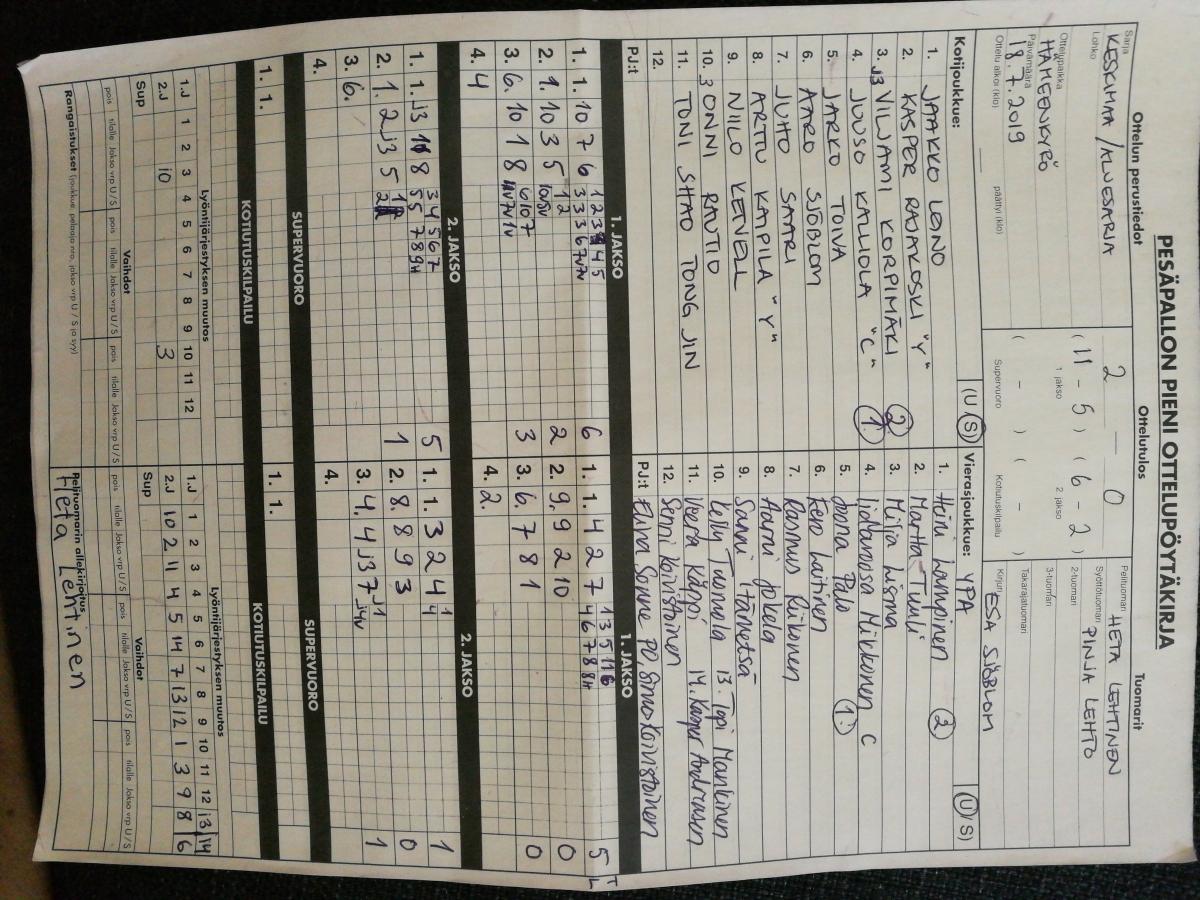 PESÄPALLON PIENI OTTELUPÖYTÄKIRJA
Ottelun perustiedot
Ottelutulos
Tuomarit
Sarja
KESKIMAA / ALUESARJA
Lohko
Ottelupaikka
HÄMEENKYRÖ
Päivämäärä
18.7.2019
Ottelu alkoi (klo)
päättyi (klo)
2 — 0
( 11 - 5 ) ( 6 - 2 )
1 jakso 2 jakso
( - ) ( - )
Supervuoro Kotiutuskilpailu
Pelituomari
HETA LEHTINEN
Syöttötuomari
PINJA LEHTO
2-tuomari
3-tuomari
Takarajatuomari
Kirjuri
ESA SJÖBLOM
Kotijoukkue:
(U/S)
1. JAAKKO LEINO
2. KASPER RAJAKOSKI "Y"
3. J3 VILJAMI KORPIMÄKI 2
4. JUUSO KALLIOLA "C" 1.
5. JARKO TOIVA
6. AARO SJÖBLOM
7. JUHO SAARI
8. ARTTU KAPILA "Y"
9. NIILO KETVELL
10. 3 ONNI RAUTIO
11. TONI SHAO TONG JIN
12.
PJ:t
Vierasjoukkue: YPA
(U/S)
1. Heini Lampinen 2
2. Martta Tuuli
3. Milja Lisma
4. Mikkonen C
5. Jenna Palo 1.
6. Eero Laitinen
7. Rasmus Riikonen
8. Aarni Jokela
9. Sanni
10. Kelly Tuomola 13. Topi Mankinen
11. Veera Käppi 14. Kasper Andreasen
12. Senni Koivistoinen
PJ:t Elina PO, Simo Koivistoinen
1. JAKSO
1. 1. 10 7 6
6
2. 1. 10 3 5
2
3. 6. 10 1 8
3
4. 4
1. JAKSO
1. 1. 4 2 7
5
2. 9. 9 2 10
0
3. 6. 7 8 1
0
4. 2.
2. JAKSO
5
2. 1. 2 J3 5
1
3. 6.
4.
2. JAKSO
1. 1. 3 2 4
1
2. 8. 8 9 3
0
3. 4. 4 J3 7
1
4.
SUPERVUORO
1. 1.
SUPERVUORO
1. 1.
KOTIUTUSKILPAILU
KOTIUTUSKILPAILU
Lyöntijärjestyksen muutos
1 2 3 4 5 6 7 8 9 10 11 12
1.J
2.J 10 3
Sup
Lyöntijärjestyksen muutos
1 2 3 4 5 6 7 8 9 10 11 12 13 14
1.J
2.J 10 2 11 4 5 14 7 13 12 1 3 9 8 6
Sup
Vaihdot
pois tilalle Jakso vrp U/S pois tilalle Jakso vrp U/S pois tilalle Jakso vrp U/S pois tilalle Jakso vrp U/S
Vaihdot
pois tilalle Jakso vrp U/S pois tilalle Jakso vrp U/S pois tilalle Jakso vrp U/S pois tilalle Jakso vrp U/S
Rangaistukset (joukkue, pelaaja nro, jakso vrp U / S ja syy)
Pelituomarin allekirjoitus
Heta Lehtinen